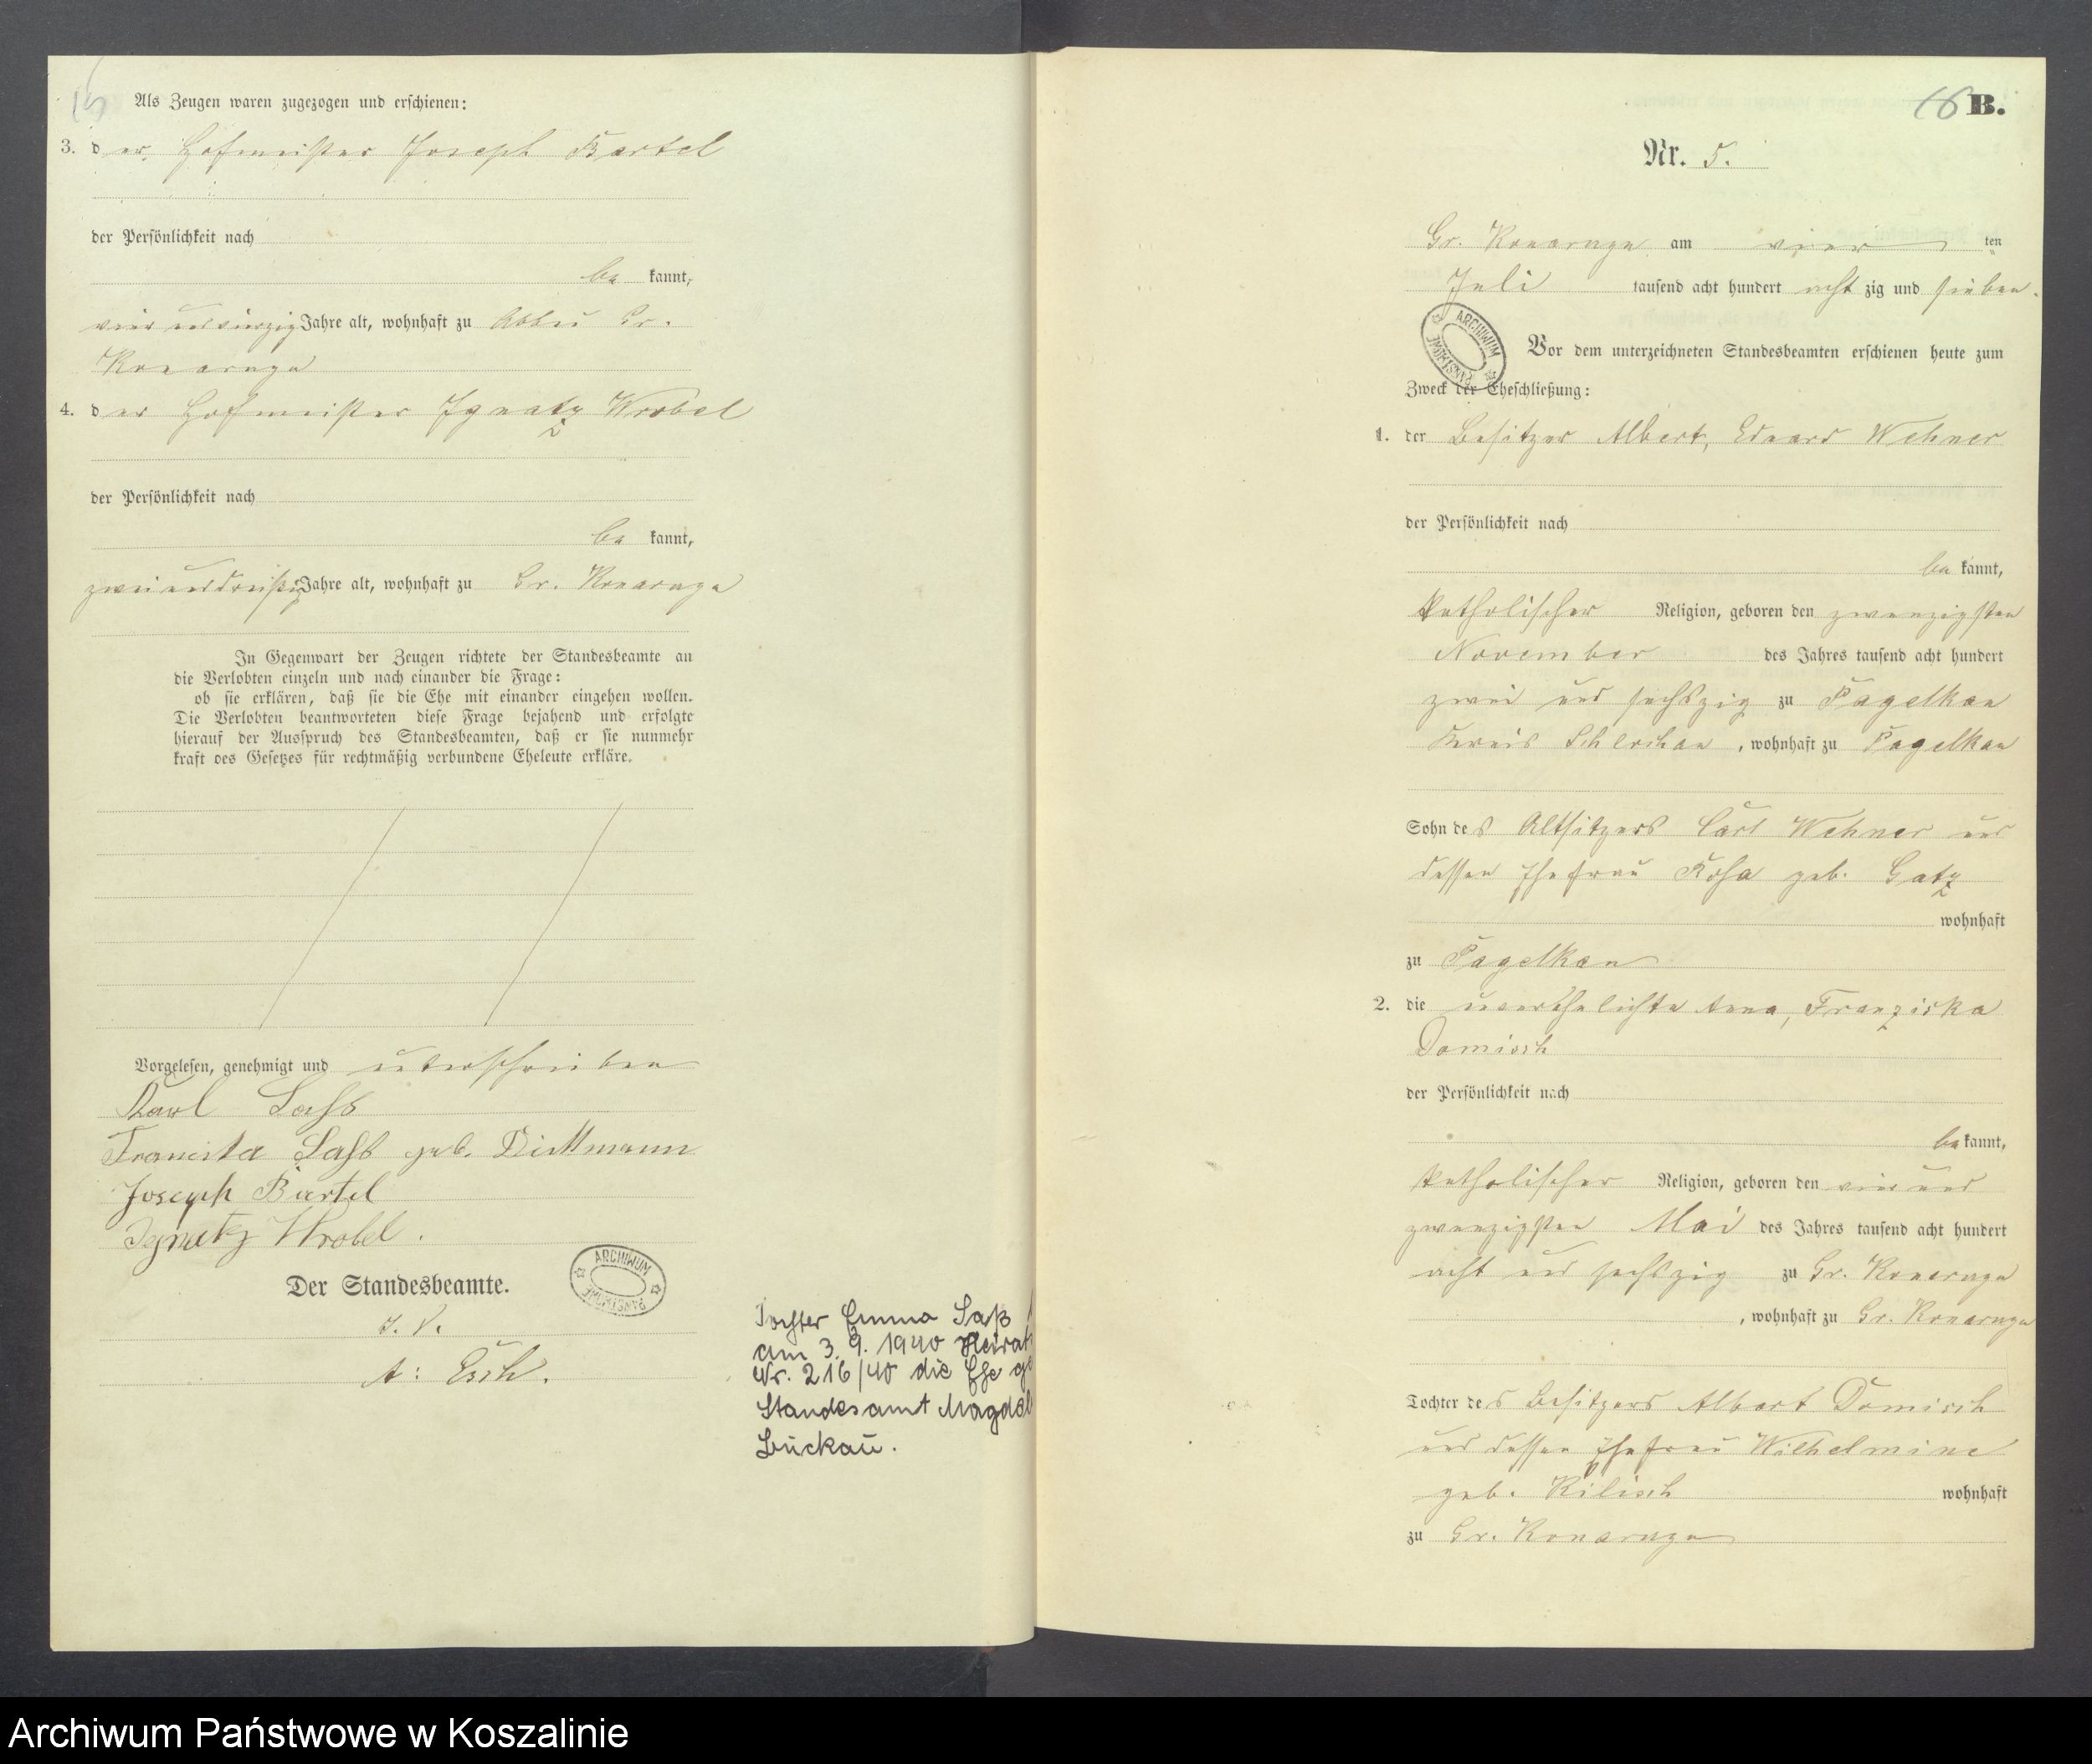 15
Als Zeugen waren zugezogen und erschienen:
3. d er Hofmeister Joseph Bartel
der Persönlichkeit nach
be kannt,
vier und vierzig Jahre alt, wohnhaft zu Abbau Gr.
Konarzyn
4. d er Hofmeister Ignatz Wrobel
der Persönlichkeit nach
be kannt,
zwei und dreißig Jahre alt, wohnhaft zu Gr. Konarzyn
In Gegenwart der Zeugen richtete der Standesbeamte an
die Verlobten einzeln und nach einander die Frage:
ob sie erklären, daß sie die Ehe mit einander eingehen wollen.
Die Verlobten beantworteten diese Frage bejahend und erfolgte
hierauf der Ausspruch des Standesbeamten, daß er sie nunmehr
kraft des Gesetzes für rechtmäßig verbundene Eheleute erkläre.
Vorgelesen, genehmigt und unterschrieben
Karl Sahs
Sahs geb. Dittmann
Joseph Bartel
Ignatz Wrobel.
Der Standesbeamte.
J. V.
A: Esch.
ARCHIWUM PAŃSTWOWE
Tochter Emma Saß
am 3. 9. 1940 Heirat
Nr. 216/40 die Ehe ge
Standesamt Magdeb
Buckau.
16 B.
Nr. 5.
Gr. Konarzyn am vier ten
Juli tausend acht hundert acht zig und sieben.
ARCHIWUM PAŃSTWOWE
Vor dem unterzeichneten Standesbeamten erschienen heute zum
Zweck der Eheschließung:
1. der Besitzer Albert, Eduard Wehner
der Persönlichkeit nach
be kannt,
katholischer Religion, geboren den zwanzigsten
November des Jahres tausend acht hundert
zwei und sechszig zu Pagelkau
Kreis Schlochau, wohnhaft zu Pagelkau
Sohn des Altsitzers Carl Wehner und
dessen Ehefrau Rosa geb. Gatz
wohnhaft
zu Pagelkau
2. die unverehelichte Anna, Franziska
Domisch
der Persönlichkeit nach
be kannt,
katholischer Religion, geboren den vier und
zwanzigsten Mai des Jahres tausend acht hundert
acht und sechszig zu Gr. Konarzyn
, wohnhaft zu Gr. Konarzyn
Tochter des Besitzers Albert Domisch
und dessen Ehefrau Wilhelmine
geb. Kilisch wohnhaft
zu Gr. Konarzyn
Archiwum Państwowe w Koszalinie